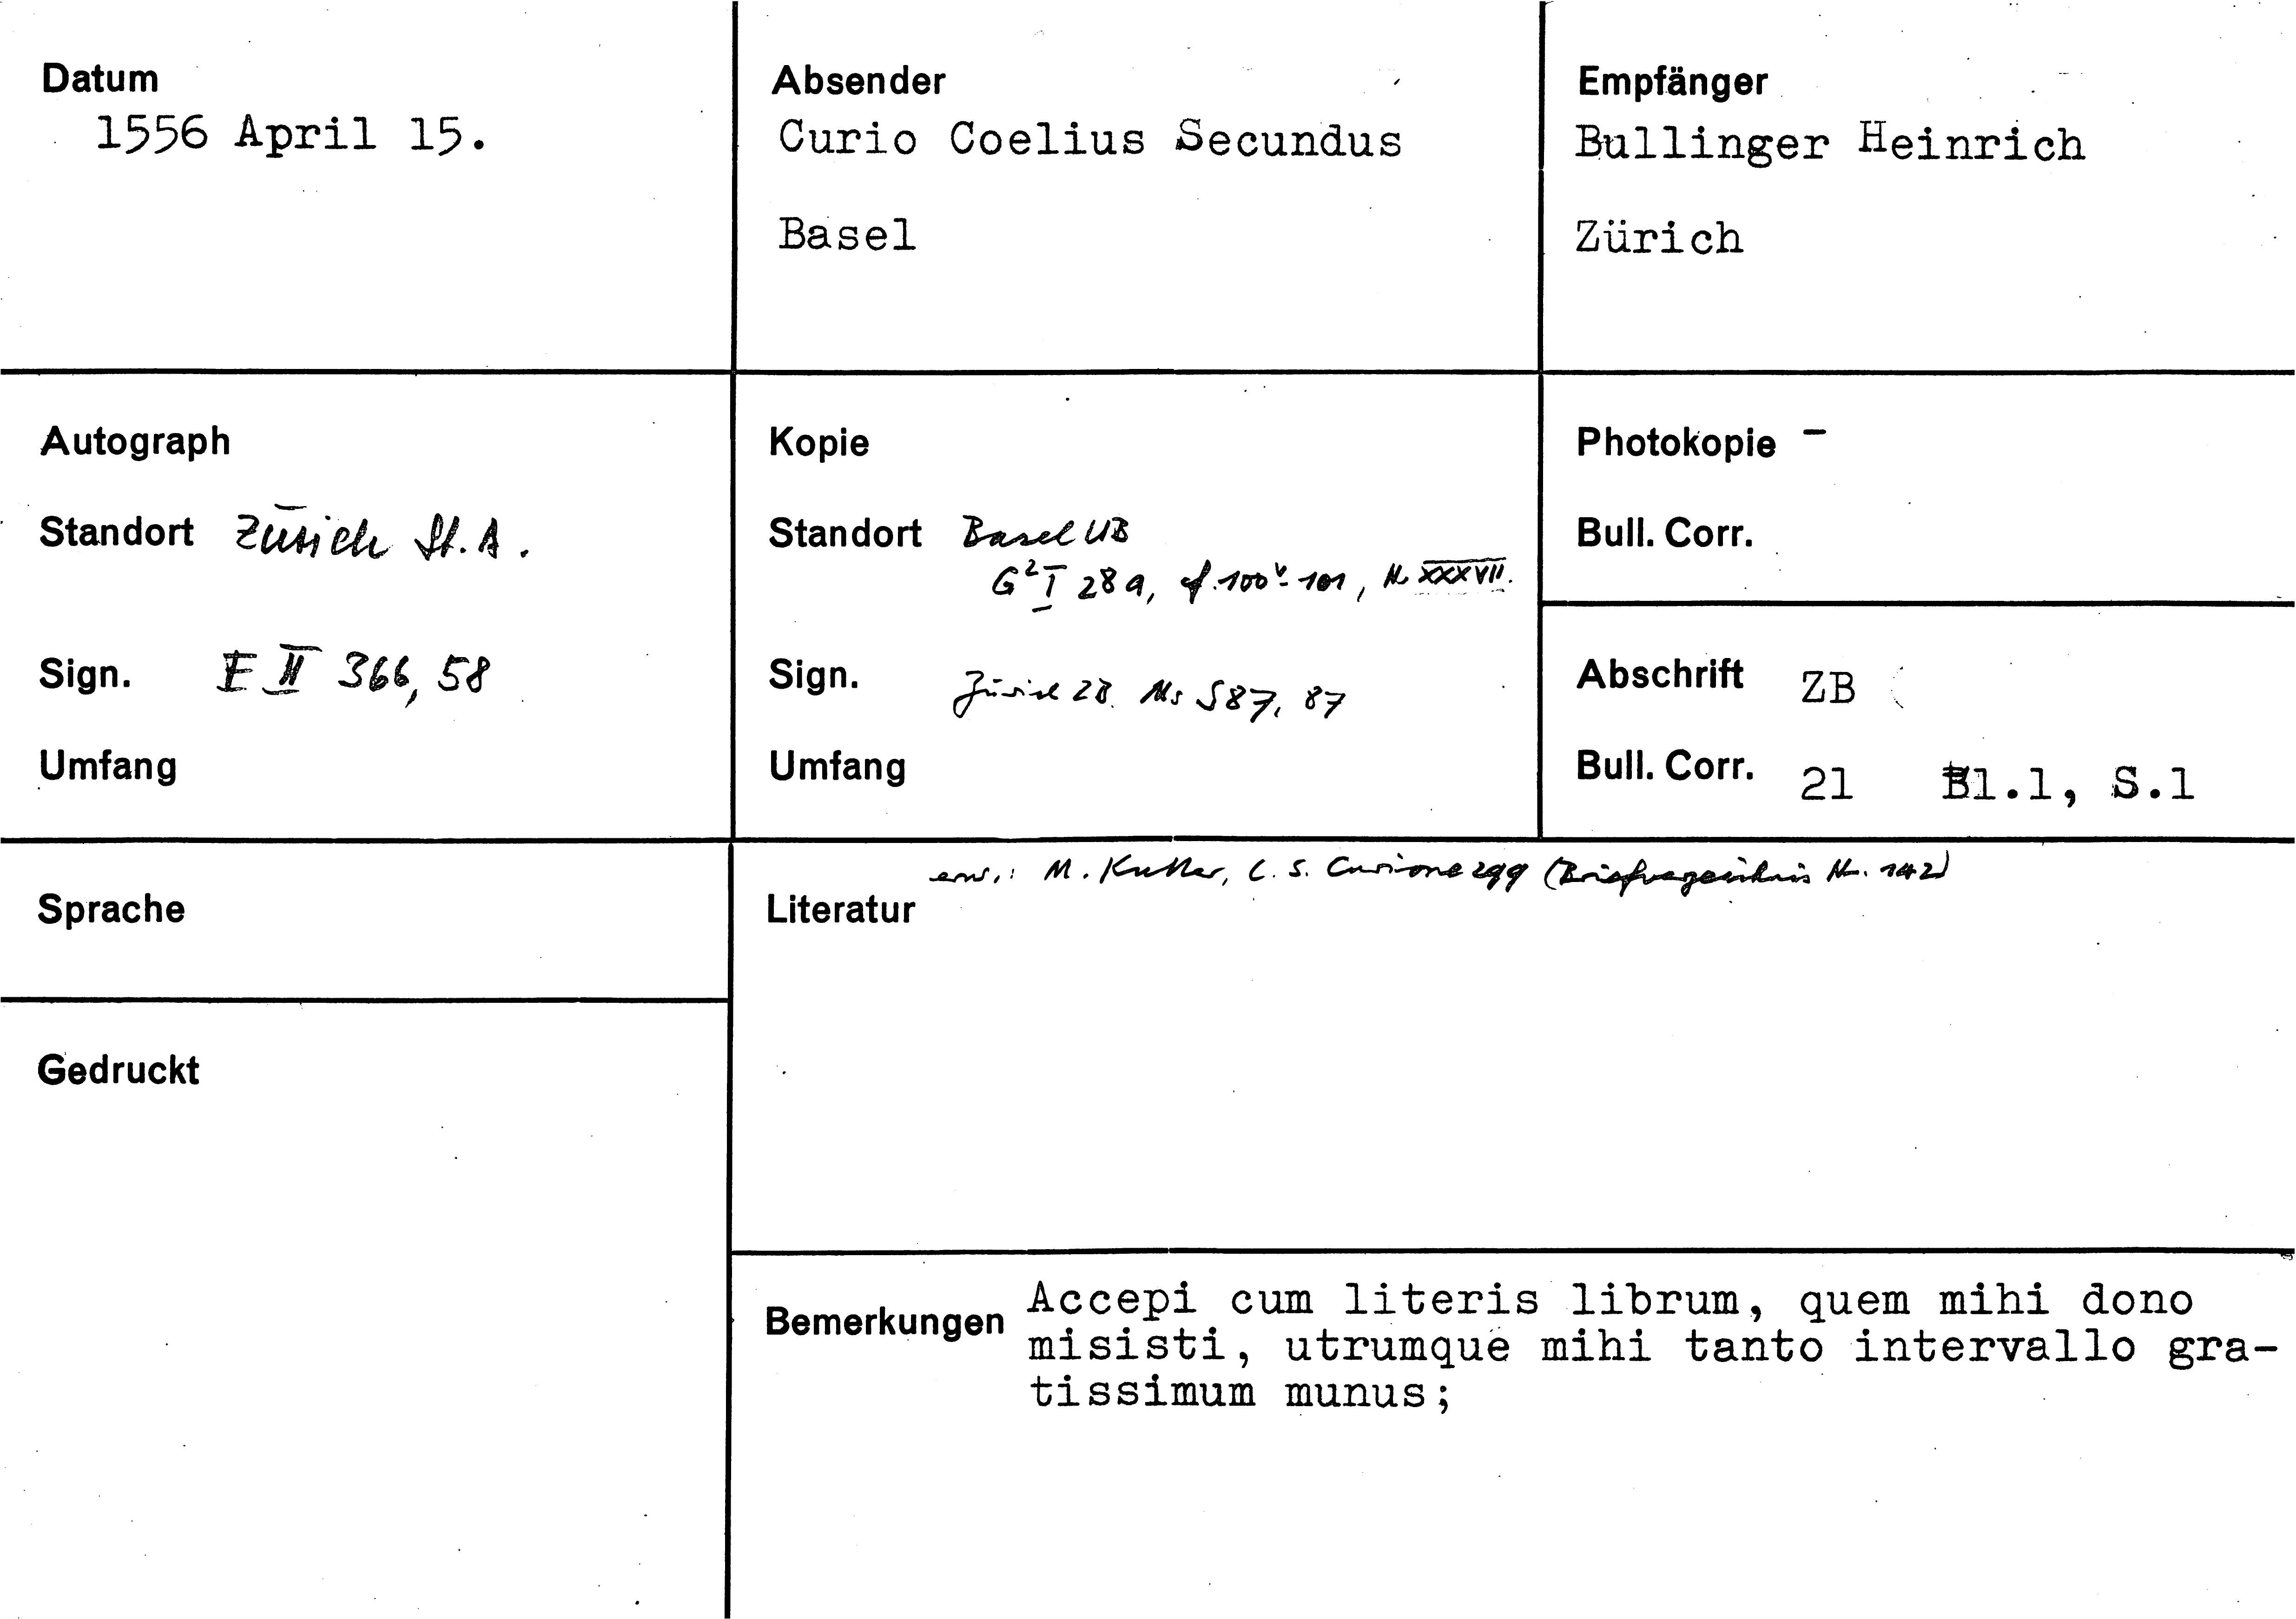 Datum
1556 April 15.
Absender
Curio Coelius Secundus
Basel
Empfänger
Bullinger Heinrich
Zürich
Autograph
Standort Zürich St.A.
Sign. E II 366, 58
Umfang
Kopie
Standort Basel UB
G² I 28a, f. 100ᵛ-101, N. XXXVII.
Sign. Zürich ZB. Ms S 87, 87
Umfang
Photokopie -
Bull. Corr.
Abschrift ZB
Bull. Corr. 21 Bl.1, S.1
Sprache
Gedruckt
erw.: M. Kutter, C. S. Curione 299 (Briefverzeichnis Nr. 142)
Literatur
Bemerkungen Accepi cum literis librum, quem mihi dono
misisti, utrumque mihi tanto intervallo gra-
tissimum munus;